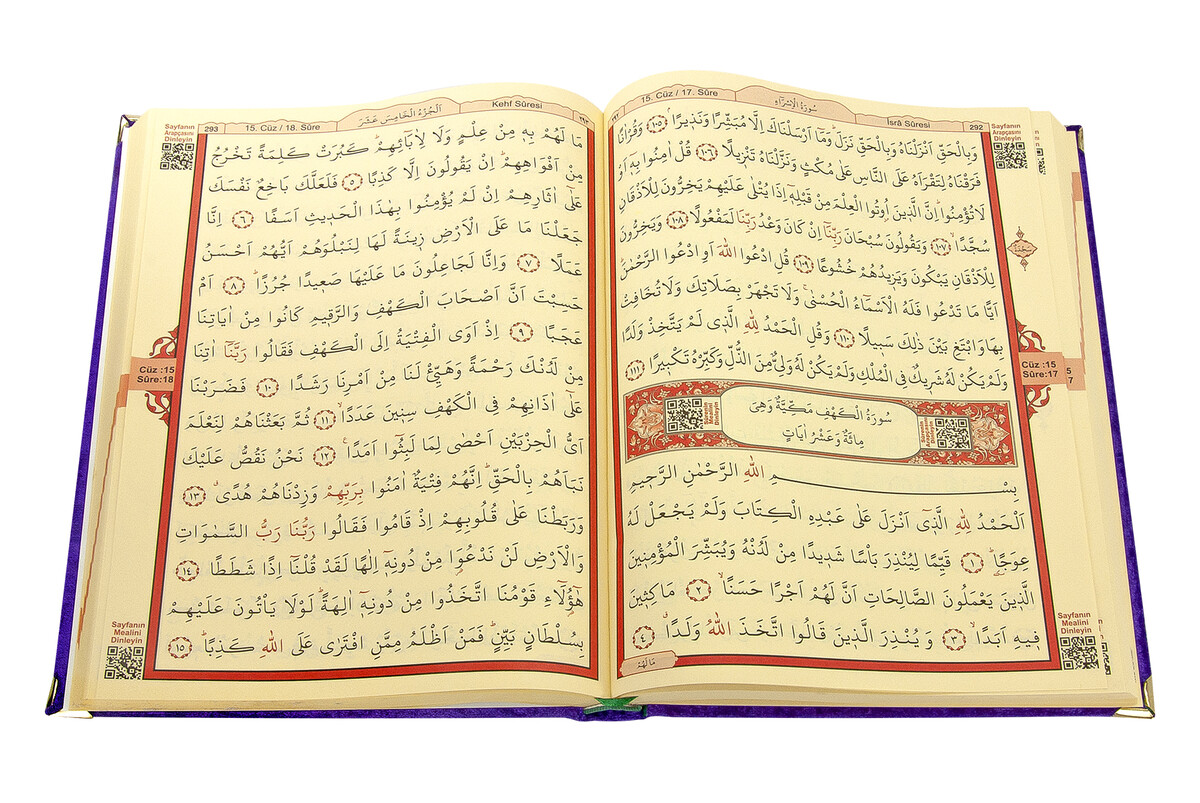 15. Cüz / 17. Sûre
سُورَةُ الْاِسْرَٓاءِ
İsrâ Sûresi
292
Sayfanın
Arapçasını
Dinleyin
وَبِالْحَقِّ اَنْزَلْنَاهُ وَبِالْحَقِّ نَزَلَۜ وَمَٓا اَرْسَلْنَاكَ اِلَّا مُبَشِّرًا وَنَذ۪يرًاۢ ﴿١٠٥﴾ وَقُرْاٰنًا
فَرَقْنَاهُ لِتَقْرَاَهُ عَلَى النَّاسِ عَلٰى مُكْثٍ وَنَزَّلْنَاهُ تَنْز۪يلًا ﴿١٠٦﴾ قُلْ اٰمِنُوا بِه۪ٓ اَوْ
لَا تُؤْمِنُواۜ اِنَّ الَّذ۪ينَ اُو۫تُوا الْعِلْمَ مِنْ قَبْلِه۪ٓ اِذَا يُتْلٰى عَلَيْهِمْ يَخِرُّونَ لِلْاَذْقَانِ
سُجَّدًاۙ ﴿١٠٧﴾ وَيَقُولُونَ سُبْحَانَ رَبِّنَٓا اِنْ كَانَ وَعْدُ رَبِّنَا لَمَفْعُولًا ﴿١٠٨﴾ وَيَخِرُّونَ
لِلْاَذْقَانِ يَبْكُونَ وَيَز۪يدُهُمْ خُشُوعًا ﴿١٠٩﴾ قُلِ ادْعُوا اللّٰهَ اَوِ ادْعُوا الرَّحْمٰنَۜ
اَيًّا مَا تَدْعُوا فَلَهُ الْاَسْمَٓاءُ الْحُسْنٰىۚ وَلَا تَجْهَرْ بِصَلَاتِكَ وَلَا تُخَافِتْ
بِهَا وَابْتَغِ بَيْنَ ذٰلِكَ سَب۪يلًا ﴿١١٠﴾ وَقُلِ الْحَمْدُ لِلّٰهِ الَّذ۪ي لَمْ يَتَّخِذْ وَلَدًا
وَلَمْ يَكُنْ لَهُ شَر۪يكٌ فِي الْمُلْكِ وَلَمْ يَكُنْ لَهُ وَلِيٌّ مِنَ الذُّلِّ وَكَبِّرْهُ تَكْب۪يرًا ﴿١١١﴾
سُورَةُ الْكَهْفِ مَكِّيَّةٌ وَهِيَ
مِائَةٌ وَعَشْرُ اٰيَاتٍ
Surenin
Mealini
Dinleyin
Surenin
Arapçasını
Dinleyin
بِسْــــمِ اللّٰهِ الرَّحْمٰنِ الرَّح۪يمِ
اَلْحَمْدُ لِلّٰهِ الَّذ۪ٓي اَنْزَلَ عَلٰى عَبْدِهِ الْكِتَابَ وَلَمْ يَجْعَلْ لَهُ
عِوَجًاۜ ﴿١﴾ قَيِّمًا لِيُنْذِرَ بَأْسًا شَد۪يدًا مِنْ لَدُنْهُ وَيُبَشِّرَ الْمُؤْمِن۪ينَ
الَّذ۪ينَ يَعْمَلُونَ الصَّالِحَاتِ اَنَّ لَهُمْ اَجْرًا حَسَنًاۙ ﴿٢﴾ مَاكِث۪ينَ
ف۪يهِ اَبَدًاۙ ﴿٣﴾ وَيُنْذِرَ الَّذ۪ينَ قَالُوا اتَّخَذَ اللّٰهُ وَلَدًاۗ ﴿٤﴾
مَا لَهُمْ
Cüz :15
Sûre:17
Sayfanın
Mealini
Dinleyin
293
15. Cüz / 18. Sûre
اَلْجُزْءُ الْخَامِسَ عَشَرَ
Kehf Sûresi
Sayfanın
Arapçasını
Dinleyin
مَا لَهُمْ بِه۪ مِنْ عِلْمٍ وَلَا لِاٰبَٓائِهِمْۜ كَبُرَتْ كَلِمَةً تَخْرُجُ
مِنْ اَفْوَاهِهِمْۜ اِنْ يَقُولُونَ اِلَّا كَذِبًا ﴿٥﴾ فَلَعَلَّكَ بَاخِعٌ نَفْسَكَ
عَلٰٓى اٰثَارِهِمْ اِنْ لَمْ يُؤْمِنُوا بِهٰذَا الْحَد۪يثِ اَسَفًا ﴿٦﴾ اِنَّا
جَعَلْنَا مَا عَلَى الْاَرْضِ ز۪ينَةً لَهَا لِنَبْلُوَهُمْ اَيُّهُمْ اَحْسَنُ
عَمَلًا ﴿٧﴾ وَاِنَّا لَجَاعِلُونَ مَا عَلَيْهَا صَع۪يدًا جُرُزًاۜ ﴿٨﴾ اَمْ
حَسِبْتَ اَنَّ اَصْحَابَ الْكَهْفِ وَالرَّق۪يمِ كَانُوا مِنْ اٰيَاتِنَا
عَجَبًا ﴿٩﴾ اِذْ اَوَى الْفِتْيَةُ اِلَى الْكَهْفِ فَقَالُوا رَبَّنَٓا اٰتِنَا
مِنْ لَدُنْكَ رَحْمَةً وَهَيِّئْ لَنَا مِنْ اَمْرِنَا رَشَدًا ﴿١٠﴾ فَضَرَبْنَا
عَلٰٓى اٰذَانِهِمْ فِي الْكَهْفِ سِن۪ينَ عَدَدًاۙ ﴿١١﴾ ثُمَّ بَعَثْنَاهُمْ لِنَعْلَمَ
اَيُّ الْحِزْبَيْنِ اَحْصٰى لِمَا لَبِثُٓوا اَمَدًا۟ ﴿١٢﴾ نَحْنُ نَقُصُّ عَلَيْكَ
نَبَاَهُمْ بِالْحَقِّۜ اِنَّهُمْ فِتْيَةٌ اٰمَنُوا بِرَبِّهِمْ وَزِدْنَاهُمْ هُدًىۗ ﴿١٣﴾
وَرَبَطْنَا عَلٰى قُلُوبِهِمْ اِذْ قَامُوا فَقَالُوا رَبُّنَا رَبُّ السَّمٰوَاتِ
وَالْاَرْضِ لَنْ نَدْعُوَا۬ مِنْ دُونِه۪ٓ اِلٰهًا لَقَدْ قُلْنَٓا اِذًا شَطَطًا ﴿١٤﴾
هٰٓؤُ۬لَٓاءِ قَوْمُنَا اتَّخَذُوا مِنْ دُونِه۪ٓ اٰلِهَةًۜ لَوْلَا يَأْتُونَ عَلَيْهِمْ
بِسُلْطَانٍ بَيِّنٍۜ فَمَنْ اَظْلَمُ مِمَّنِ افْتَرٰى عَلَى اللّٰهِ كَذِبًاۜ ﴿١٥﴾
Cüz :15
Sûre:18
Sayfanın
Mealini
Dinleyin